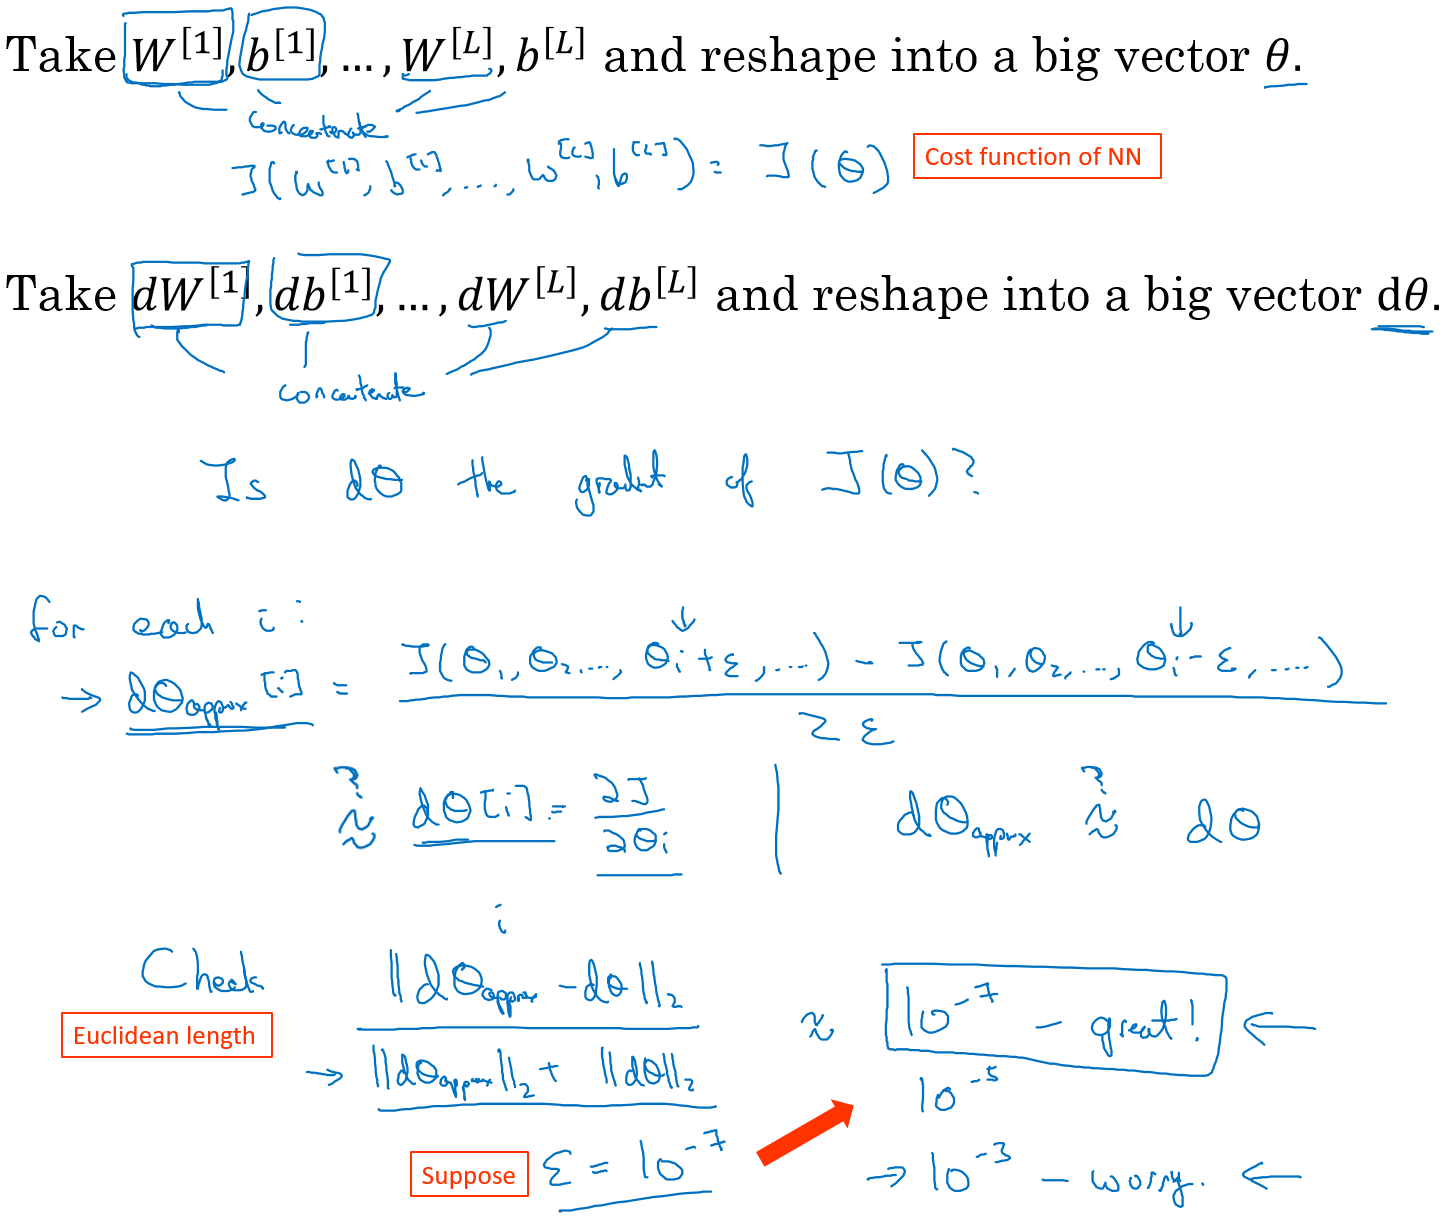 Take W^[1], b^[1], ..., W^[L], b^[L] and reshape into a big vector θ.
concatenate
J(W^[1], b^[1], ..., W^[L], b^[L]) = J(θ)
Cost function of NN
Take dW^[1], db^[1], ..., dW^[L], db^[L] and reshape into a big vector dθ.
concatenate
Is dθ the gradient of J(θ)?
for each i:
→ dθapprox[i] = (J(θ1, θ2, ..., θi + ε, ...) - J(θ1, θ2, ..., θi - ε, ...)) / 2ε
≈? dθ[i] = ∂J/∂θi | dθapprox ≈? dθ
i
Check ||dθapprox - dθ||2 ≈ 10^-7 - great! ←
Euclidean length
→ ||dθapprox||2 + ||dθ||2
10^-5
Suppose ε = 10^-7
→ 10^-3 - worry. ←